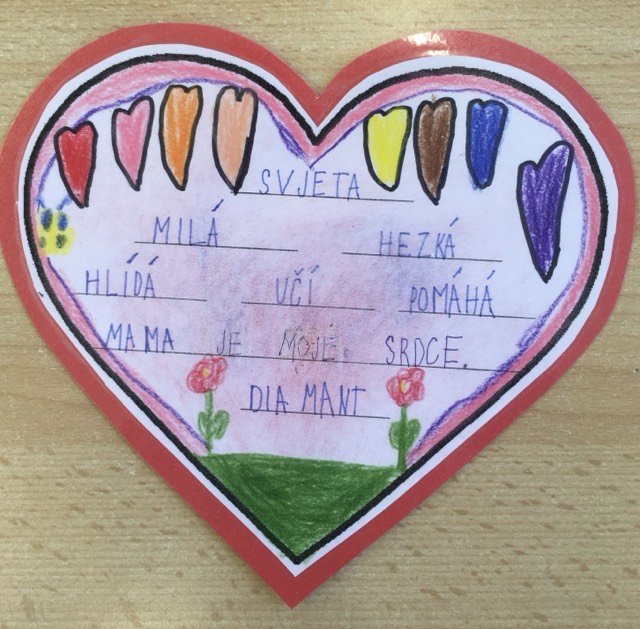 SVJETA
MILÁ HEZKÁ
HLÍDÁ UČÍ POMÁHÁ
MAMA JE MOJE SRDCE.
DIAMANT